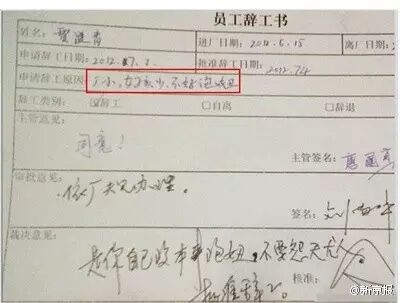 员工辞工书
姓名: 贾进 进厂日期: 2012.5.15 离厂日期:
申请辞工日期: 2012.7.2. 批准辞工日期: 2012.7.4
申请辞工原因: 厂小,女孩少.不好泡妞
辞工类别: ☑辞工 □自离 □辞退
主管意见:
同意!
主管签名:
审批意见:
依厂规办理。
签名: 刘
裁决意见:
是你自己没本事泡妞,不要怨天尤人
批准辞工。 核准:
@新京报